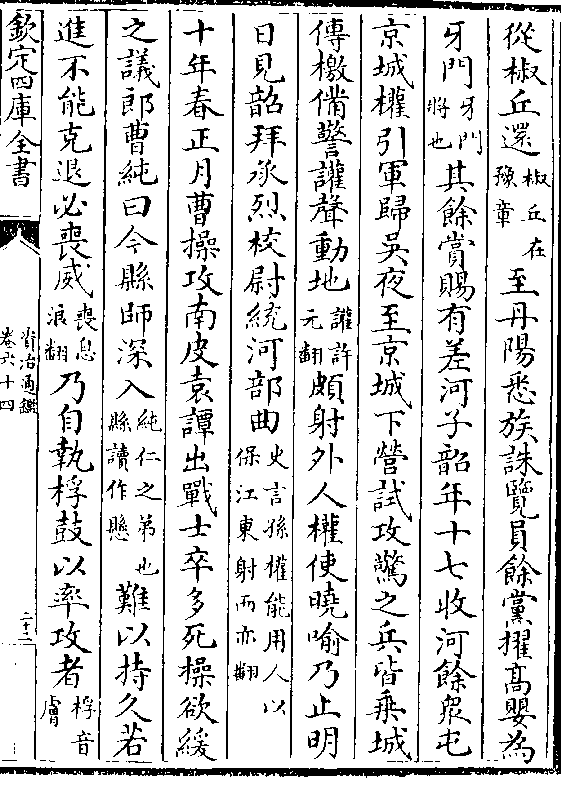 從椒丘還椒丘在豫章至丹陽悉族誅覽員餘黨擢高嬰為
牙門牙門將也其餘賞賜有差河子韶年十七收河餘眾屯
京城權引軍歸吳夜至京城下營試攻驚之兵皆乘城
傳檄備警讙聲動地讙許元翻頗射外人權使曉喻乃止明
日見韶拜承烈校尉統河部曲史言孫權能用人以保江東射而亦翻
十年春正月曹操攻南皮袁譚出戰士卒多死操欲緩
之議郎曹純曰今縣師深入純仁之弟也縣讀作懸難以持久若
進不能克退必喪威喪息浪翻乃自執桴鼓以率攻者桴音膚
欽定四庫全書
資治通鑑
卷六十四
二十二